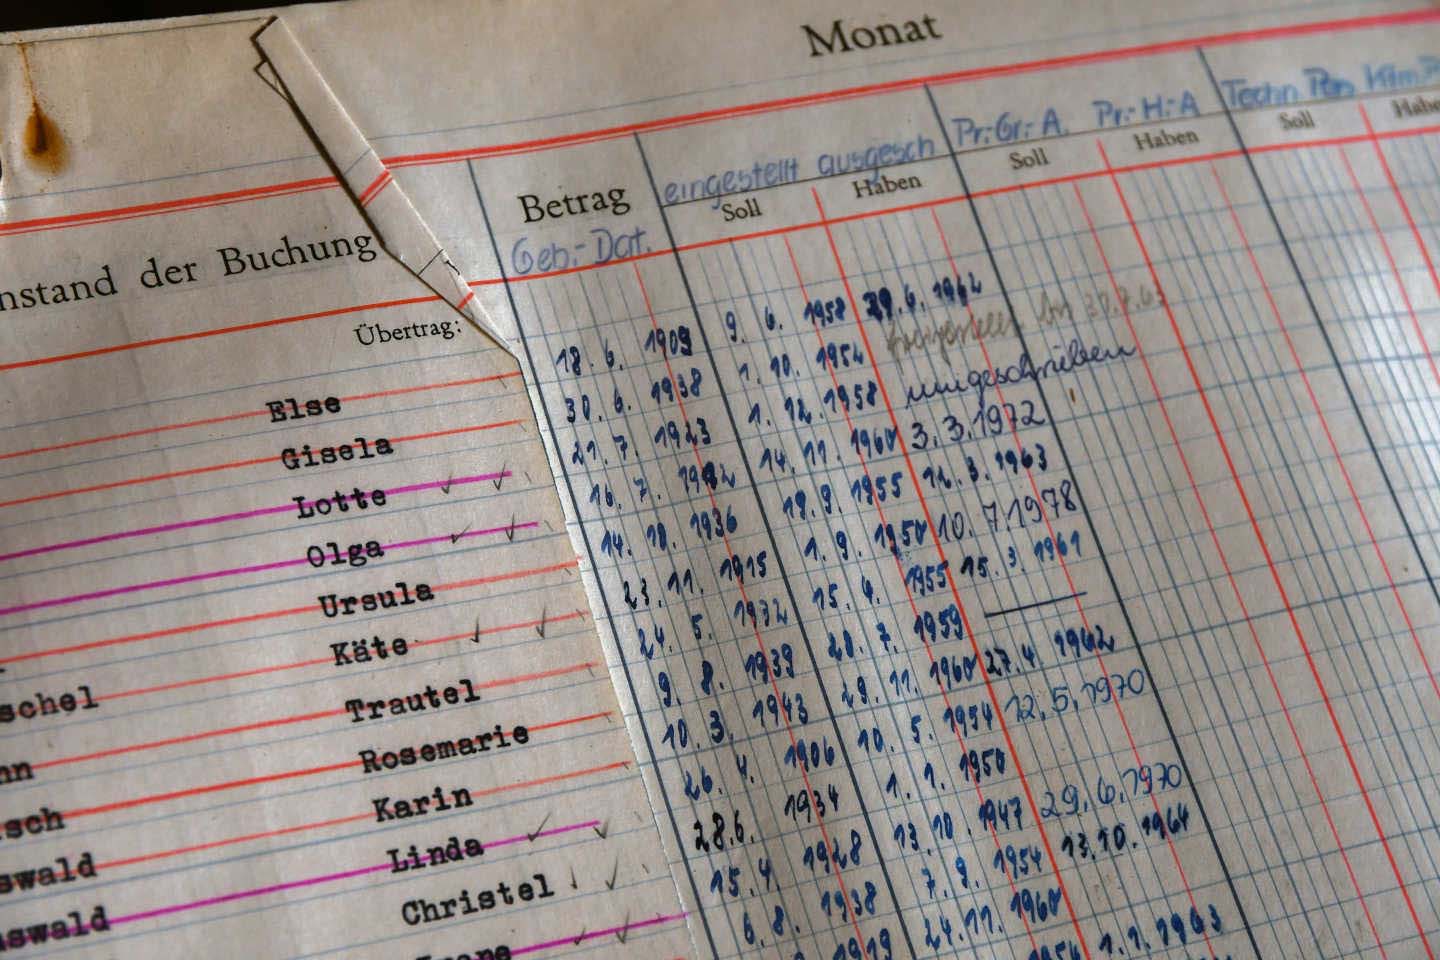 Monat
Betrag eingestellt ausgesch Pr.-Gr.-A. Pr.-H.-A Techn.
Soll Haben Soll Haben Soll Habe
nstand der Buchung Geb.-Dat.
Übertrag:
Else 18. 6. 1909 9. 6. 1958 29. 6. 1962
Gisela 30. 6. 1938 1. 10. 1954 30.7.63
Lotte 21. 7. 1923 1. 12. 1958 umgeschrieben
Olga 16. 7. 1942 14. 11. 1960 3.3.1972
Ursula 14. 10. 1936 19. 9. 1955 12. 3. 1963
schel Käte 23. 11. 1915 1. 9. 1950 10. 7.1978
nn Trautel 24. 5. 1932 15. 4. 1955 15. 3. 1961
sch Rosemarie 9. 8. 1939 20. 7. 1959
swald Karin 10. 3. 1943 29. 11. 1960 27. 4. 1962
swald Linda 26. 4. 1906 10. 5. 1954 12. 5. 1970
Christel 28.6. 1934 1. 1. 1950
15. 4. 1928 13. 10. 1947 29. 6. 1970
6. 8. 1938 7. 9. 1954 13. 10. 1964
1919 24. 11. 1960
1954 1. 1. 1963